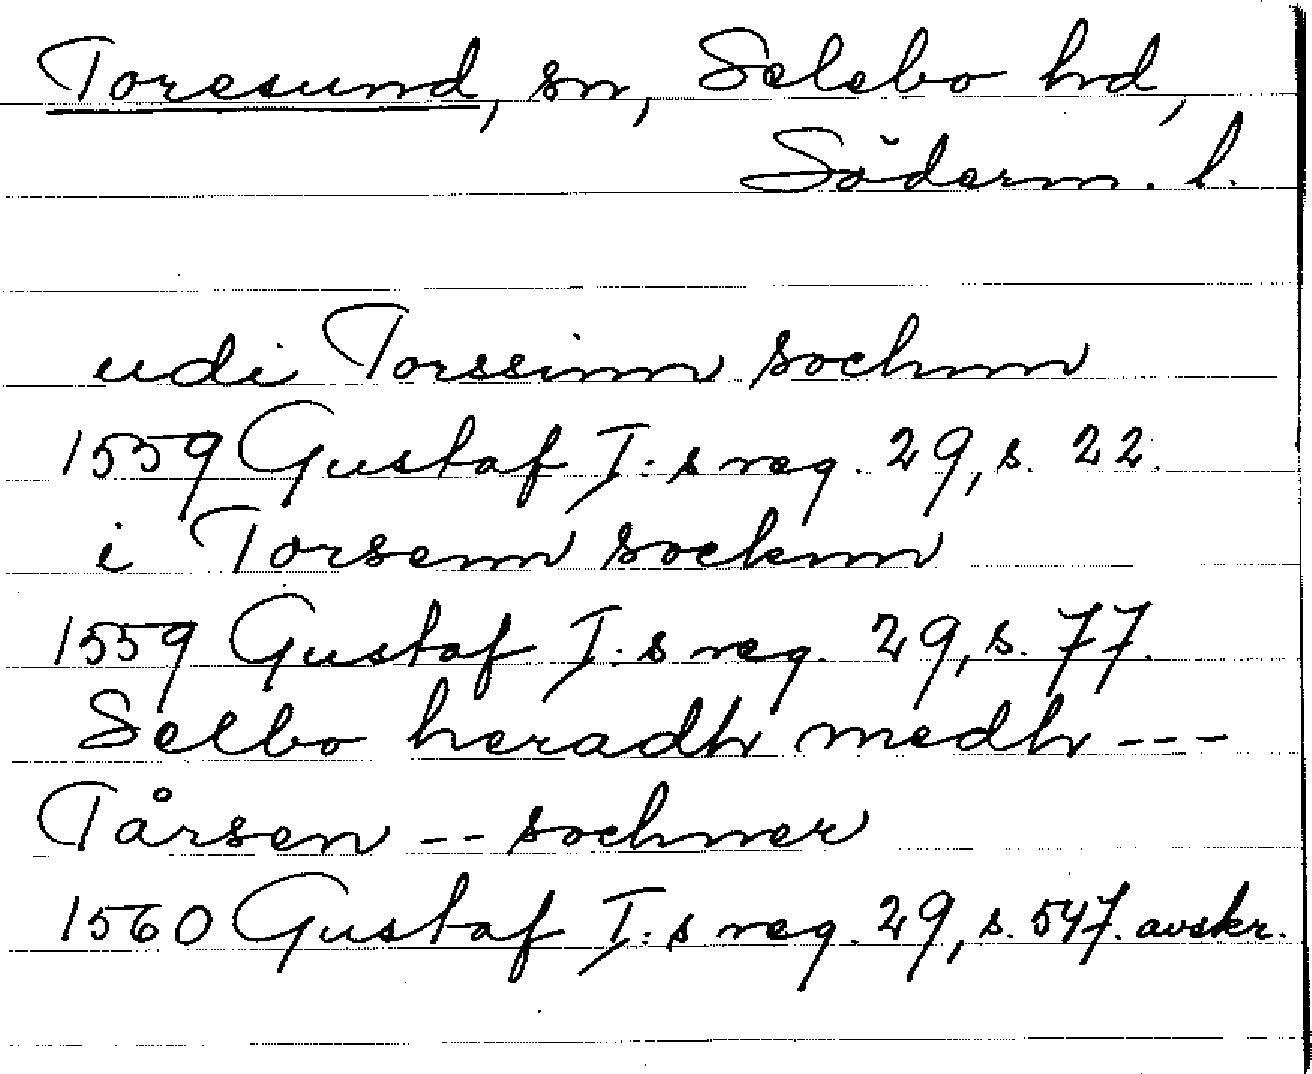 Toresund, sn, Selebo hd,
Söderm. l.
udi Torssinn sochnn
1559 Gustaf I:s reg. 29, s. 22.
i Torsenn socknn
1559 Gustaf I:s reg. 29, s. 77.
Selbo heradh medh ---
Tårsen -- sochner
1560 Gustaf I:s reg. 29, s. 547. avskr.